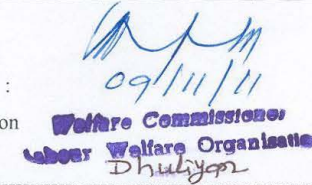 :
09/11/11
on
Welfare Commissioner
Labour Welfare Organisatio
Dhuliyan